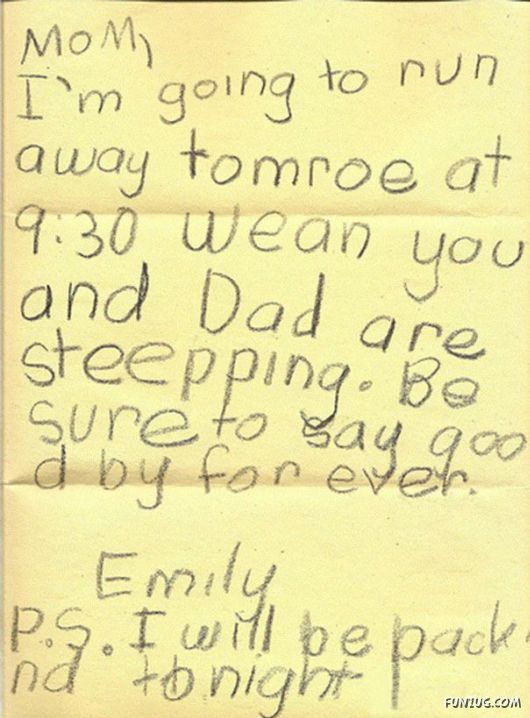 MoM,
I'm going to run
away tomroe at
9:30 wean you
and Dad are
steepping. Be
sure to say goo
d by for ever.
Emily
P.S. I will be pack
nd tonight
FUNZUG.COM